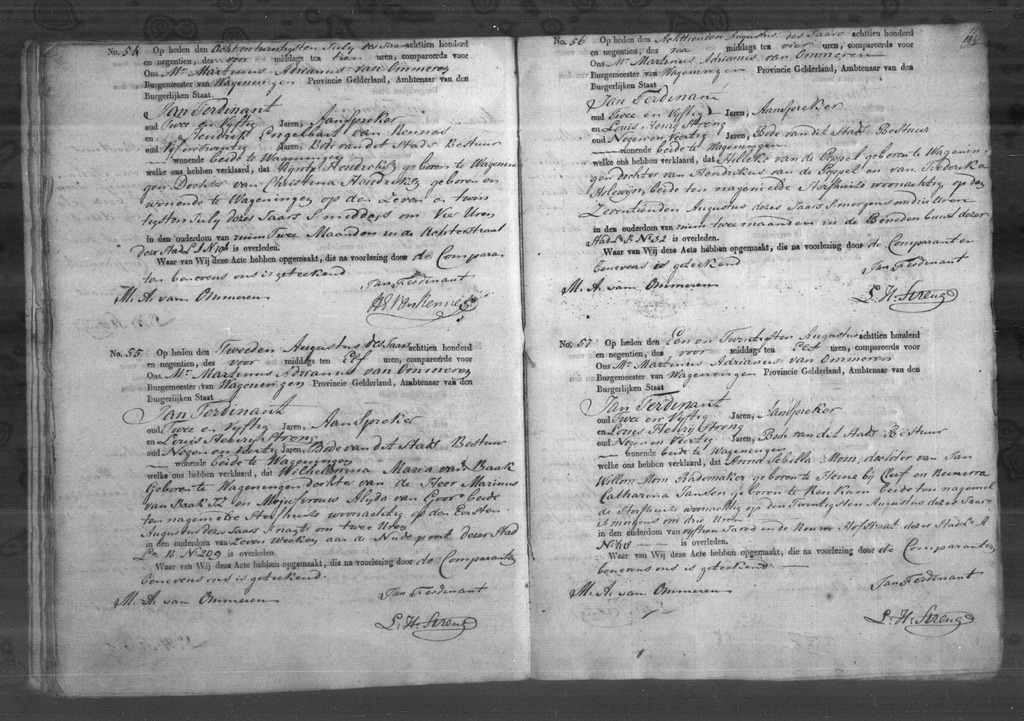 No. 54 Op heden den Achtentwintigsten July des Jaars achttien honderd
en negentien, des voor middags ten tien uren, compareerde voor
Ons Mr. Martinus Adrianus van Ommeren
Burgemeester van Wageningen Provincie Gelderland, Ambtenaar van den
Burgerlijken Staat
Jan Ferdinant
oud Twee en Vyftig Jaren, Aanspreker
en Hendrik Engelhart van Rennes
oud Jaren, Bode van dit Stads Bestuur
wonende beide te Wageningen
welke ons hebben verklaard, dat Hendriks geboren te Wagenin
gen Dochter van Christina Hendriks geboren en
wonende te Wageningen op den Zeven en twin
tigsten July dezes Jaars Smiddags om Vier Uren
in den ouderdom van ruim Twee Maanden in de Achterstraat
dezer Stad is overleden.
Waar van Wij deze Acte hebben opgemaakt, die na voorlezing door de Compara
ten benevens ons is geteekend
Jan Ferdinant
M. A. van Ommeren
No. 55 Op heden den Tweeden Augustus des Jaars achttien honderd
en negentien, des voor middags ten Elf uren, compareerde voor
Ons Mr. Martinus Adrianus van Ommeren
Burgemeester van Wageningen Provincie Gelderland, Ambtenaar van den
Burgerlijken Staat
Jan Ferdinant
oud Twee en Vyftig Jaren, Aanspreker
en Louis Henry Streng
oud Negen en Veertig Jaren, Bode van dit Stads Bestuur
wonende beide te Wageningen
welke ons hebben verklaard, dat Wilhelmina Maria van Baak
Geboren te Wageningen dochter van de Heer Marinus
van Baak en Mejufvrouw Alyda van Goor beide
ten nagemelde Sterfhuize woonachtig op den Eersten
Augustus dezes Jaars Snachts om twee Uren
in den ouderdom van Zeven Weeken aan de Nudepoort dezer Stad
La B. No 209 is overleden.
Waar van Wij deze Acte hebben opgemaakt, die na voorlezing door de Comparanten
benevens ons is geteekend.
Jan Ferdinant
M. A. van Ommeren
L. H. Streng
No. 56 Op heden den Achttienden Augustus des Jaars achttien honderd
en negentien, des na middags ten vier uren, compareerde voor
Ons Mr. Martinus Adrianus van Ommeren
Burgemeester van Wageningen Provincie Gelderland, Ambtenaar van den
Burgerlijken Staat
Jan Ferdinant
oud Twee en Vyftig Jaren, Aanspreker
en Louis Henry Streng
oud Negen en Veertig Jaren, Bode van dit Stads Bestuur
wonende beide te Wageningen
welke ons hebben verklaard, dat van de Poppel geboren te Wagenin
gen dochter van Hendrikus van de Poppel en van Frederika
beide ten nagemelde Sterfhuize woonachtig op den
Zeventienden Augustus dezes Jaars Smorgens om Uren
in den ouderdom van ruim twee maanden in de Beneden buurt dezer
Stad La B. No 52 is overleden.
Waar van Wij deze Acte hebben opgemaakt, die na voorlezing door de Comparanten
benevens is geteekend
Jan Ferdinant
M. A. van Ommeren
L. H. Streng
No. 57 Op heden den Een en Twintigsten Augustus achttien honderd
en negentien, des voor middags ten Elf uren, compareerde voor
Ons Mr. Martinus Adrianus van Ommeren
Burgemeester van Wageningen Provincie Gelderland, Ambtenaar van den
Burgerlijken Staat
Jan Ferdinant
oud Twee en Vyftig Jaren, Aanspreker
en Louis Henry Streng
oud Negen en Veertig Jaren, Bode van dit Stads Bestuur
wonende beide te Wageningen
welke ons hebben verklaard, dat Anna Sebilla Mom, dochter van Jan
Willem Mom Rademaker geboren te bij Cleef en
Catharina Jansen geboren te Renkum beide ten nagemel
de Sterfhuize woonachtig op den Twintigsten Augustus dezes Jaars
Smorgens om drie Uren
in den ouderdom van Jaren in de Hofstraat dezer Stad La A
is overleden.
Waar van Wij deze Acte hebben opgemaakt, die na voorlezing door de Comparanten
benevens ons is geteekend.
Jan Ferdinant
M. A. van Ommeren
L. H. Streng